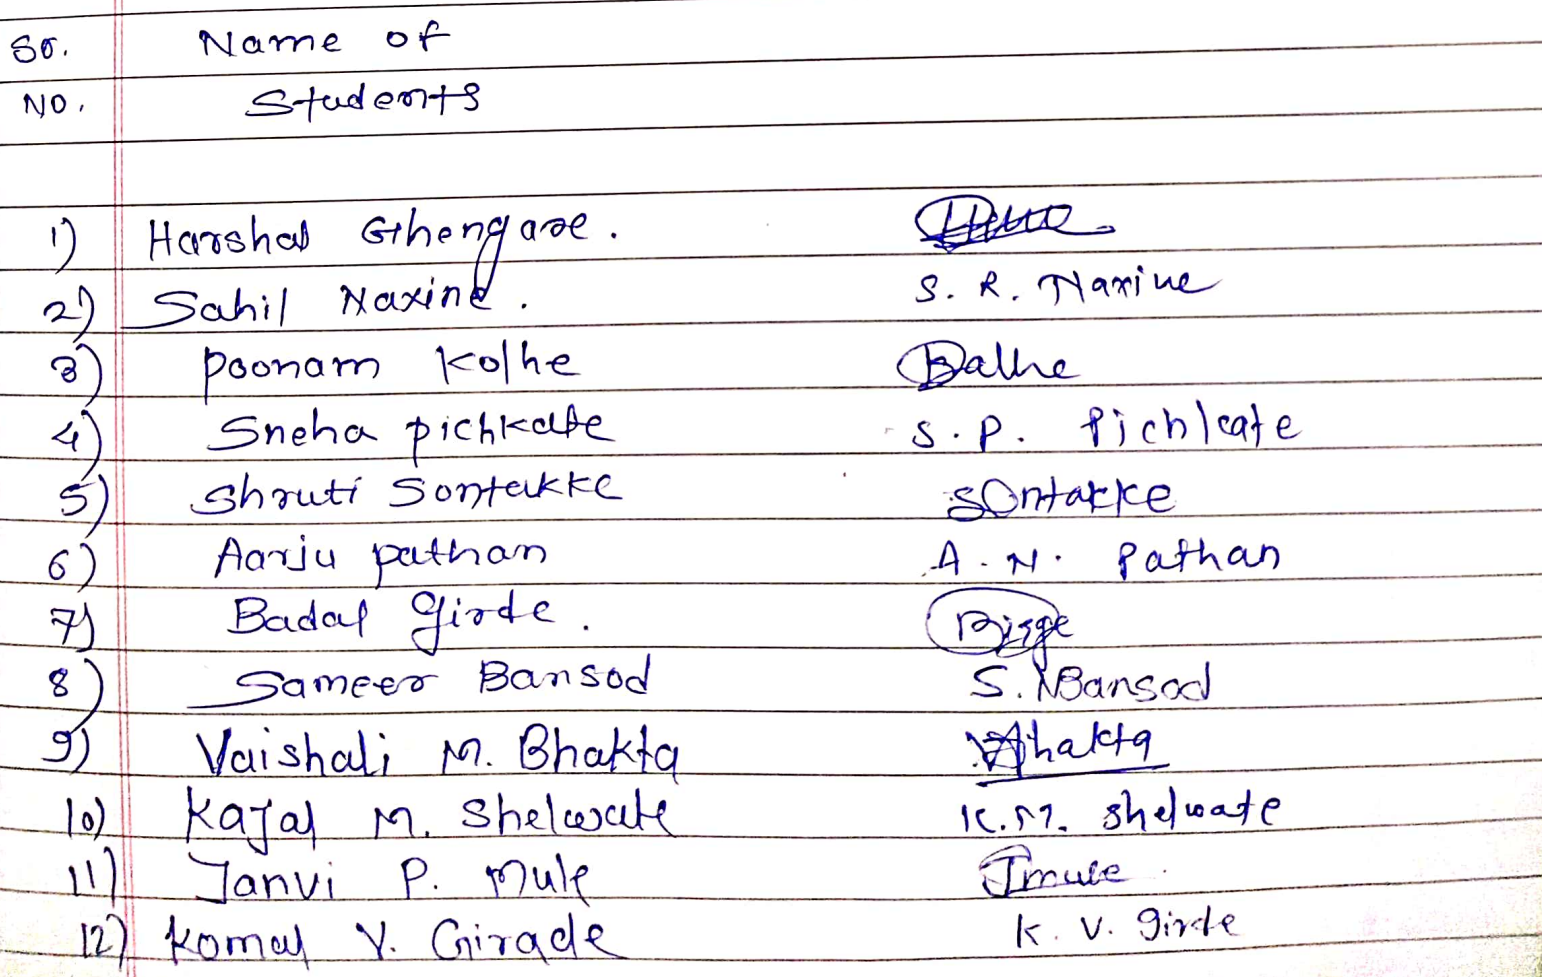 Sr. Name of
No. Students
1) Harshal Ghengare.
2) Sahil Naxine. S. R. Naxine
3) Poonam Kolhe
4) Sneha pichkate S. P. Pichkate
5) Shruti Sontakke Sontakke
6) Aarju pathan A. N. Pathan
7) Badal Girde.
8) Sameer Bansod S. N Bansod
9) Vaishali M. Bhakta Bhakta
10) Kajal M. Shelwate K. M. Shelwate
11) Janvi P. Mule Jmule
12) Komal V. Girade K. V. Girde